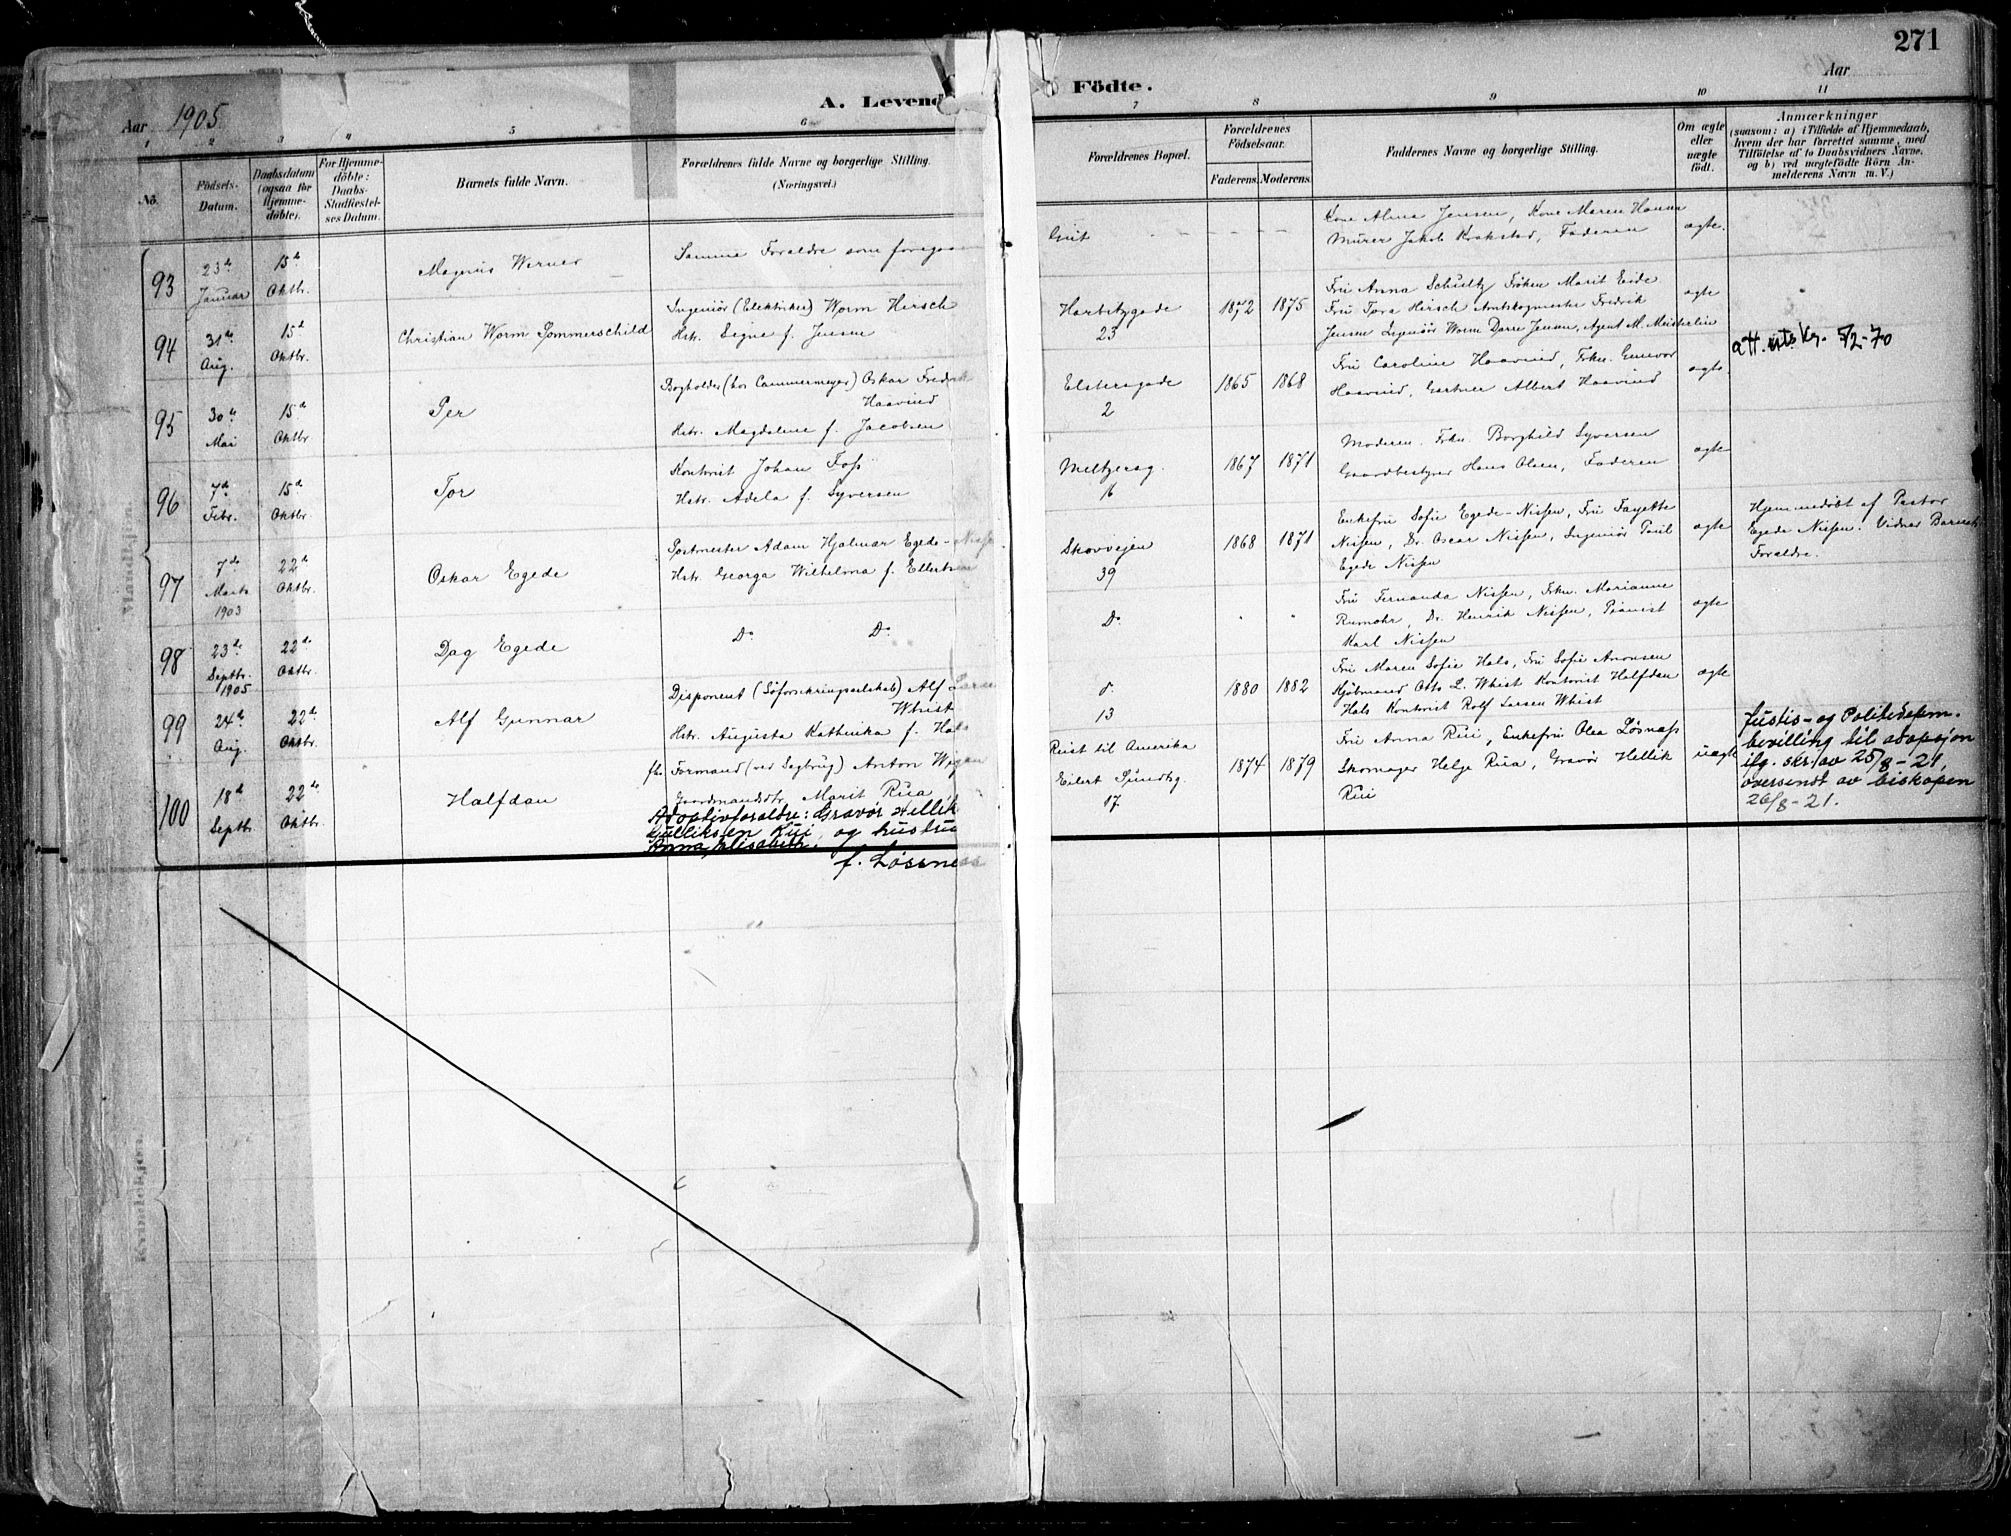 271
Aar 1905
A. Levende Födte.
Aar
1 2 3 4 5 6 7 8 9 10 11
No.
Födsels-Datum.
Daabsdatum (ogsaa for Hjemme-döbte).
For Hjemme-döbte: Daabs-Stadfæstel-ses Datum.
Barnets fulde Navn.
Forældrenes fulde Navne og borgerlige Stilling.
(Næringsvei.)
Forældrenes Bopæl.
Forældrenes Födselsaar.
Faderens. Moderens.
Faddernes Navne og borgerlige Stilling.
Om ægte eller uægte födt.
Anmærkninger
(saasom: a) i Tilfælde af Hjemmedaab,
hvem der har forrettet samme, med
Tilföielse af to Daabsvidners Navne,
og b) ved uægtefödte Börn An-
melderens Navn m. V.)
Mandkjøn.
93 23de Januar 15de Oktbr. Magnus Werner
Samme Foræeldre som foregaa
Kone Alma Jensen, Kone Maren Hansen
Murer Jakob Krokstad, Faderen
ægte.
94 31te Aug. 15de Oktbr. Christian Worm Sommerschild
Ingeniør (Elektriker) Worm Hirsch
Hstr. Signe f. Jensen
Harbitzgade 23
1872 1875
Fru Anna Schultz Frøken Marit Eide
Fru Tora Hirsch Amtskogmester Fredrik
Jensen Ingeniør Worm Darre Jensen, Agent M. Meisterlin
ægte
att. utskr. 5/2-70
95 30te Mai 15de Oktbr. Per
Bogholder (hos Cammermeyer) Oskar Fredrik
Haavind
Hstr. Magdalene f. Jacobsen
Elstersgade 2
1865 1868
Fru Caroline Haavind, Frkn. Gunvor
Haavind, Gartner Albert Haavind
ægte
96 7de Febr. 15de Oktbr. Tor
Kontorist Johan Foss
Hstr. Adela f. Syversen
Meltzersg. 16
1867 1871
Moderen. Frkn. Borghild Syversen
Gaardbestyrer Hans Olsen, Faderen
ægte
97 7de Marts 1903 22de Oktbr. Oskar Egede
Postmester Adam Hjalmar Egede-Nisse
Hstr. Georga Wilhelma f. Ellertsen
Skovveien 39
1868 1871
Enkefru Sofie Egede-Nissen, Fru Fayette
Nissen, Dr. Oscar Nissen, Ingeniør Paul
Egede Nissen
ægte
Hjemmedøbt af Pastor
Egede Nissen. Vidner Barnets
Foræeldre.
98 23de Septbr. 1905 22de Oktbr. Dag Egede
Do Do
Do
" "
Fru Fernanda Nissen, Frkn. Marianne
Rumohr, Dr. Henrik Nissen, Pianist
Karl Nissen
ægte
99 24de Aug. 22de Oktbr. Alf Gunnar
Disponent (Søforsikringsselskab) Alf Larse
Whist
Hstr. Augusta Kathinka f. Hals
d. 13
1880 1882
Fru Maren Sofie Hals, Fru Sofie Aronsen
Kjøbmand Otto L. Whist Kontorist Halfdan
Hals Kontorist Rolf Larsen Whist
ægte
100 18de Septbr. 22de Oktbr. Halfdan
fhv. Formand (ved Sagbrug) Anton Wigan
Gaardmandsdtr. Marit Rua
Adoptivforældre: Gravør Hellik
Gulliksen Rui, og hustru
Anna Elisabeth.
f. Løssness
Reist til Amerika
Eilert Sundtsg. 17
1874 1879
Fru Anna Rui, Enkefru Olea Løsnæss
Skomager Helge Rua, Gravør Hellik
Rui
uægte
Justis- og Politidepm.
bevilling til adopsjon
ifg. skr. av 25/8-21,
oversendt av biskopen
26/8-21.
Kvindekjøn.